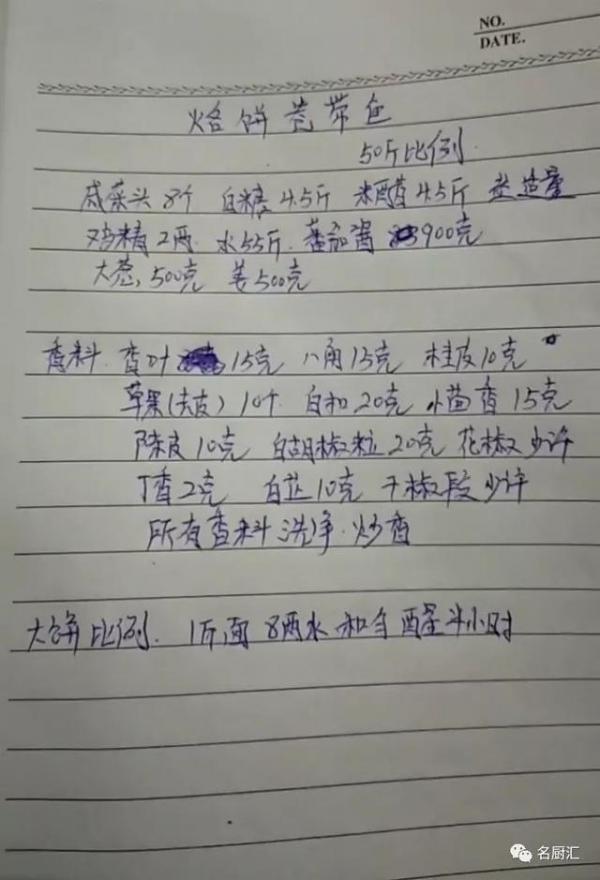 NO.
DATE.
烙饼卷带鱼
50斤比例
咸菜头8个 白糖4.5斤 米醋4.5斤 盐适量
鸡精2两 水55斤 蕃茄酱900克
大葱500克 姜500克
香料 香叶15克 八角15克 桂皮10克
草果(去皮)10个 白扣20克 小茴香15克
陈皮10克 白胡椒粒20克 花椒少许
丁香2克 白芷10克 干椒段少许
所有香料洗净 炒香
大饼比例 1斤面 8两水 和匀 醒半小时
名厨汇